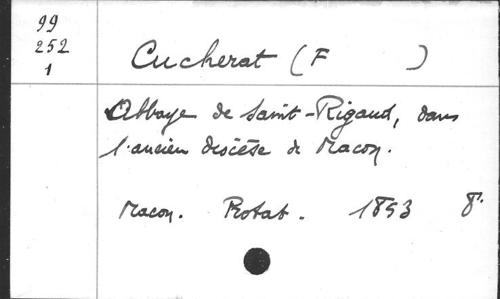 99
252
1
Cucherat (F )
Abbaye de Saint-Rigaud, dans
l'ancien diocèse de Macon.
Macon. Protat. 1853 8°